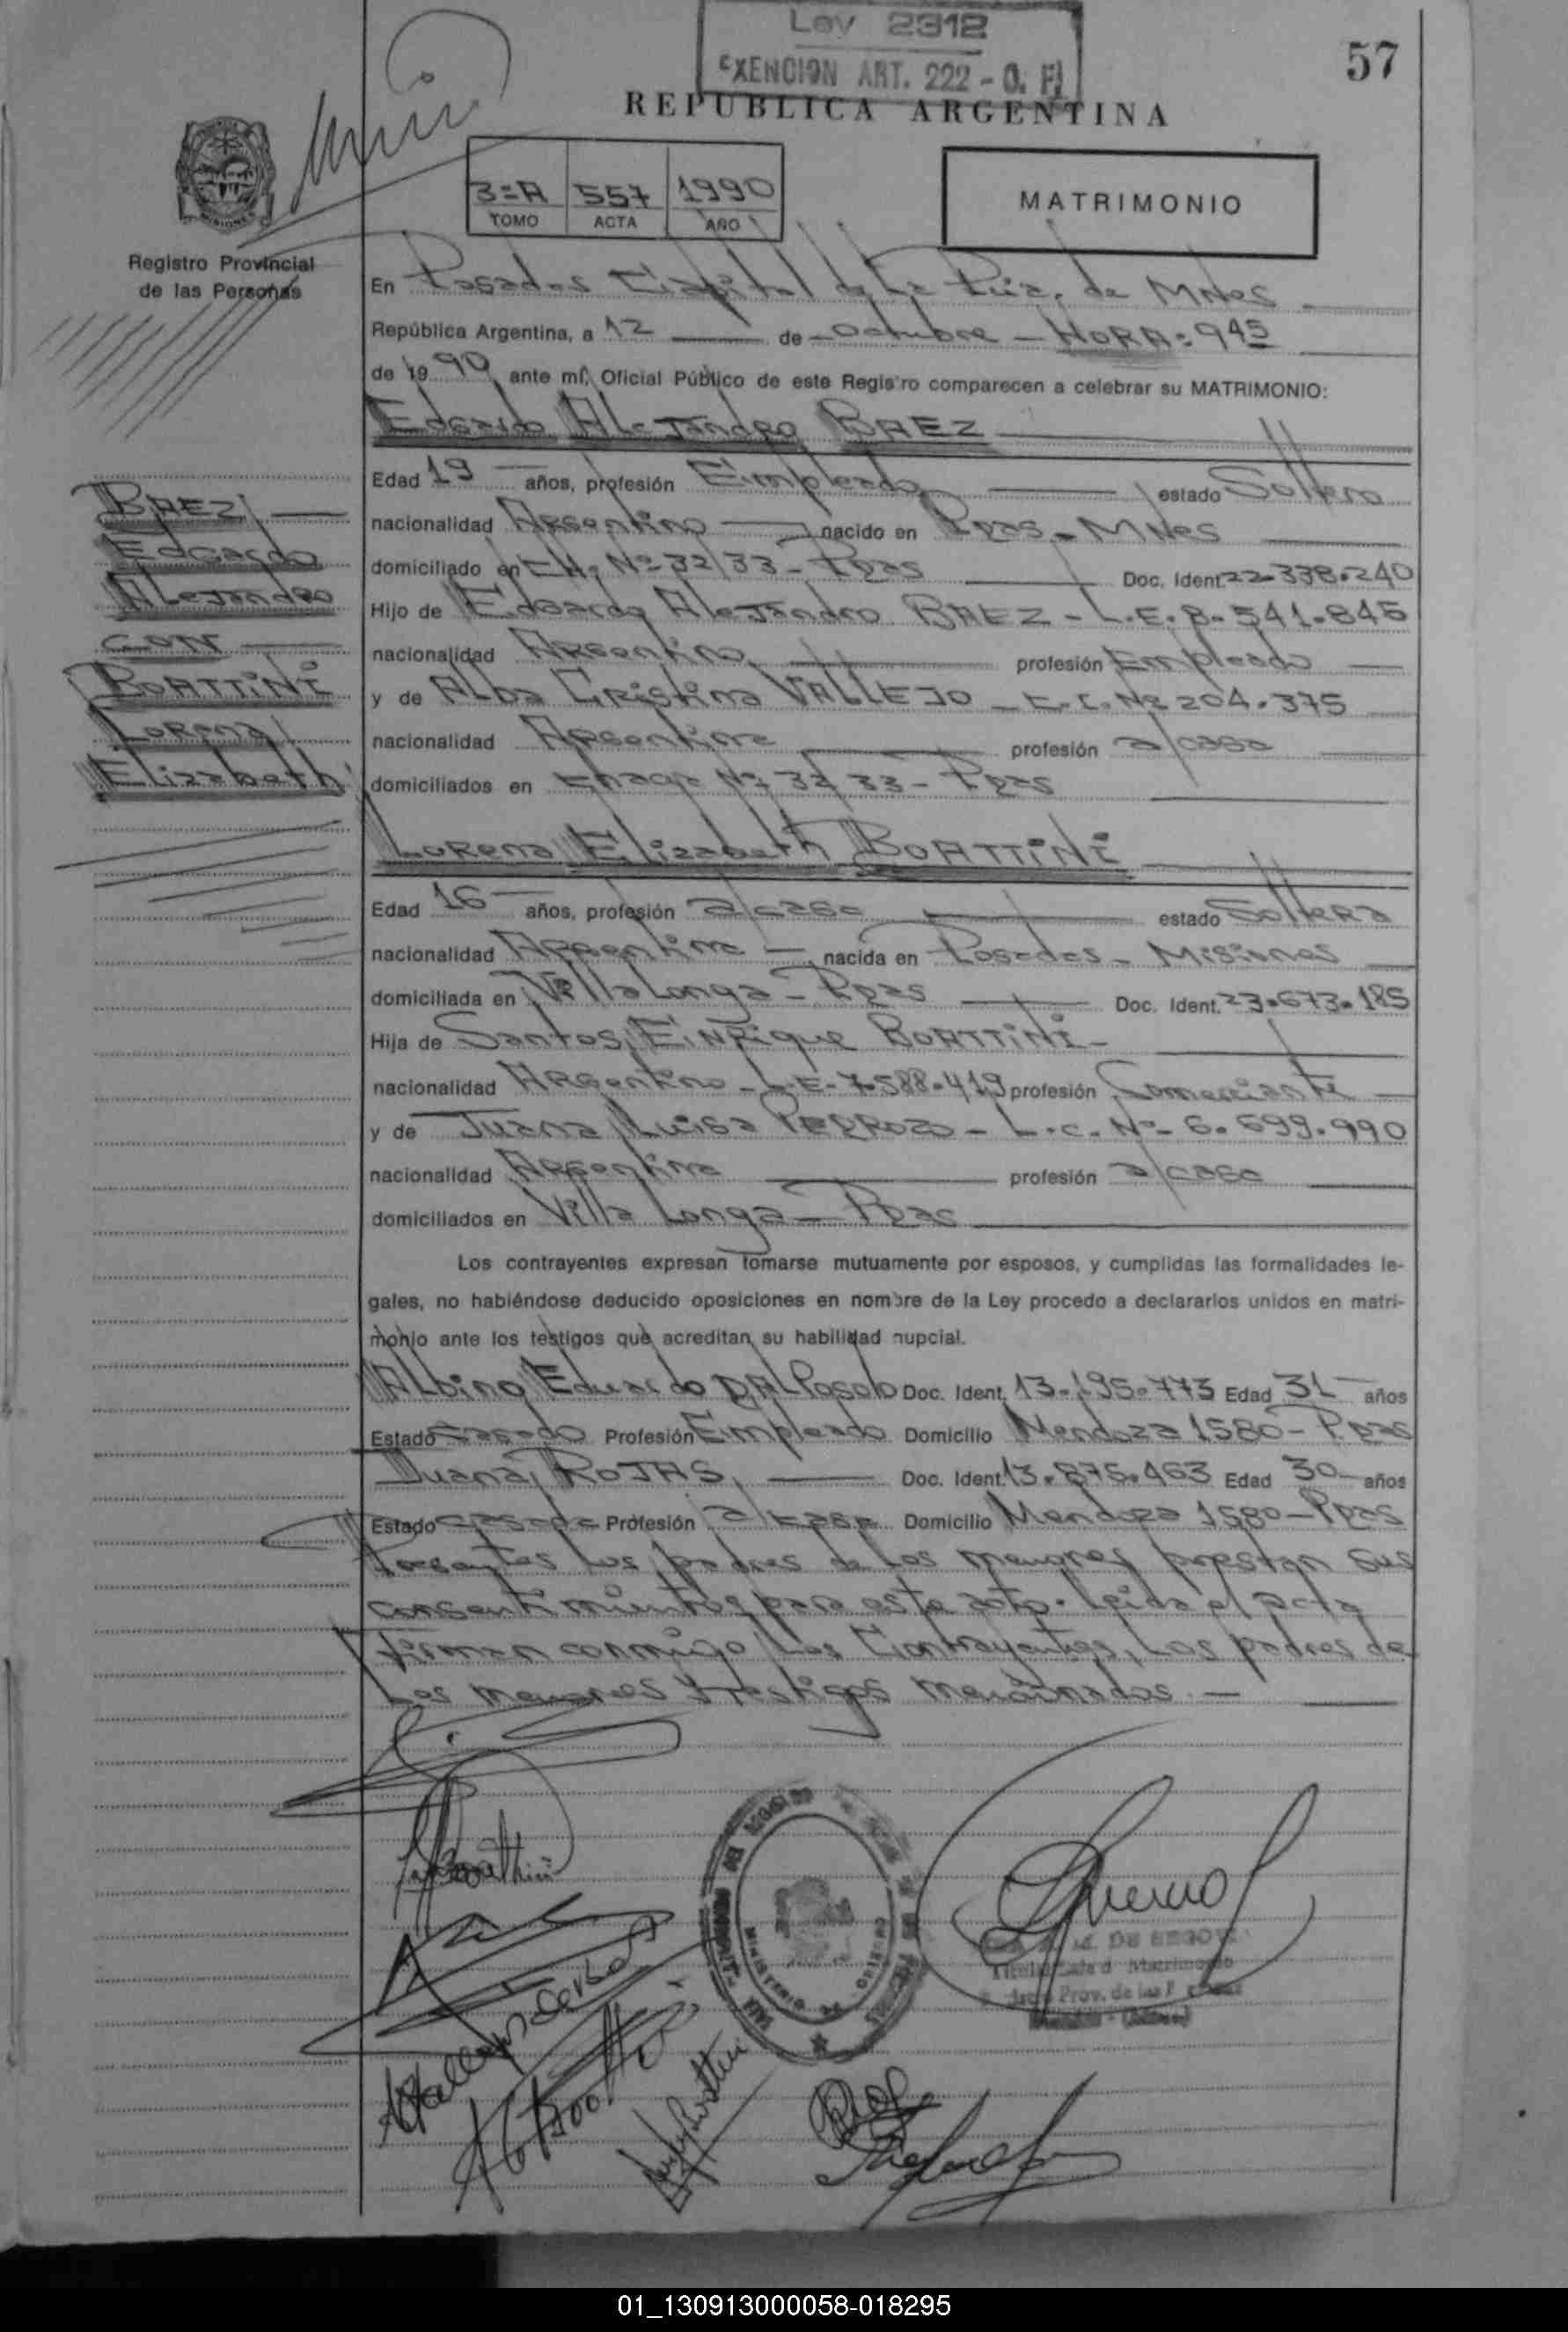 Ley 2312
EXENCION ART. 222 - O. F.
57
REPUBLICA ARGENTINA
3=A 557 1990
TOMO ACTA AÑO
MATRIMONIO
Registro Provincial
de las Personas
En Posadas Capital de la Pcia. de Mnes
República Argentina, a 12 de Octubre - HORA: 945
de 1990 ante mí, Oficial Público de este Registro comparecen a celebrar su MATRIMONIO:
Edgardo Alejandro BAEZ
Edad 19 años, profesión Empleado estado Soltero
nacionalidad Argentino nacido en Pdas - Mnes
domiciliado en Ch. Nº 32/33 - Pdas Doc. Ident. 22.338.240
Hijo de Edgardo Alejandro BAEZ - L.E. 8.541.845
nacionalidad Argentino profesión Empleado
y de Alba Cristina VALLEJO - C.I. Nº 204.375
nacionalidad Argentina profesión a/casa
domiciliados en Chacra Nº 32/33 - Pdas
BAEZ
Edgardo
Alejandro
CON
BOATTINI
Lorena
Elizabeth
Lorena Elizabeth BOATTINI
Edad 16 años, profesión a/casa estado Soltera
nacionalidad Argentina nacida en Posadas - Misiones
domiciliada en Villa Longa - Pdas Doc. Ident. 23.673.185
Hija de Santos Enrique BOATTINI -
nacionalidad Argentino - L.E. 7.588.419 profesión Comerciante
y de Juana Luisa PEDROZO - L.C. Nº 6.699.990
nacionalidad Argentina profesión a/casa
domiciliados en Villa Longa - Pdas
Los contrayentes expresan tomarse mutuamente por esposos, y cumplidas las formalidades le-
gales, no habiéndose deducido oposiciones en nombre de la Ley procedo a declararlos unidos en matri-
monio ante los testigos que acreditan su habilidad nupcial.
Albino Eduardo DALPosolo Doc. Ident. 13.195.773 Edad 31 años
Estado Casado Profesión Empleado Domicilio Mendoza 1580 - Pdas
Juana ROJAS Doc. Ident. 13.875.463 Edad 30 años
Estado casada Profesión a/casa Domicilio Mendoza 1580 - Pdas
Presentes los padres de los menores prestan sus
consentimientos para este acto. Leida el acta
Firman conmigo los Contrayentes, los padres de
los menores y testigos mencionados. -
M. DE SEGOVIA
Matrimonio
Prov. de las P
01_130913000058-018295